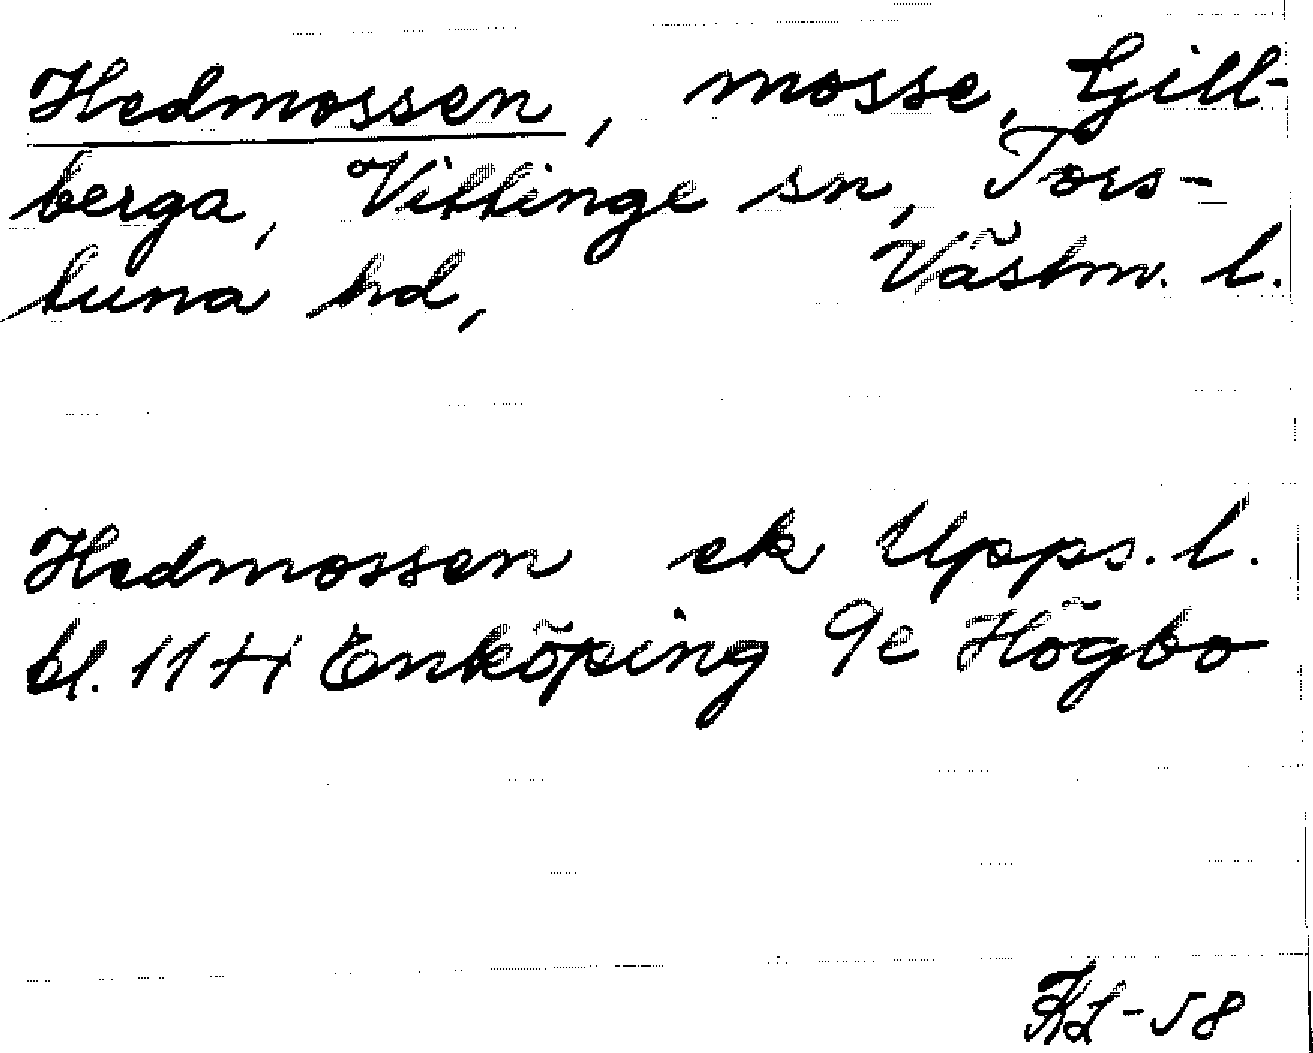 Hedmossen, mosse, Gill-
berga, Vittinge sn, Tors-
tuna hd, Västm. l.
Hedmossen ek Upps. l.
bl. 11 H Enköping 9e Högbo
KL-58